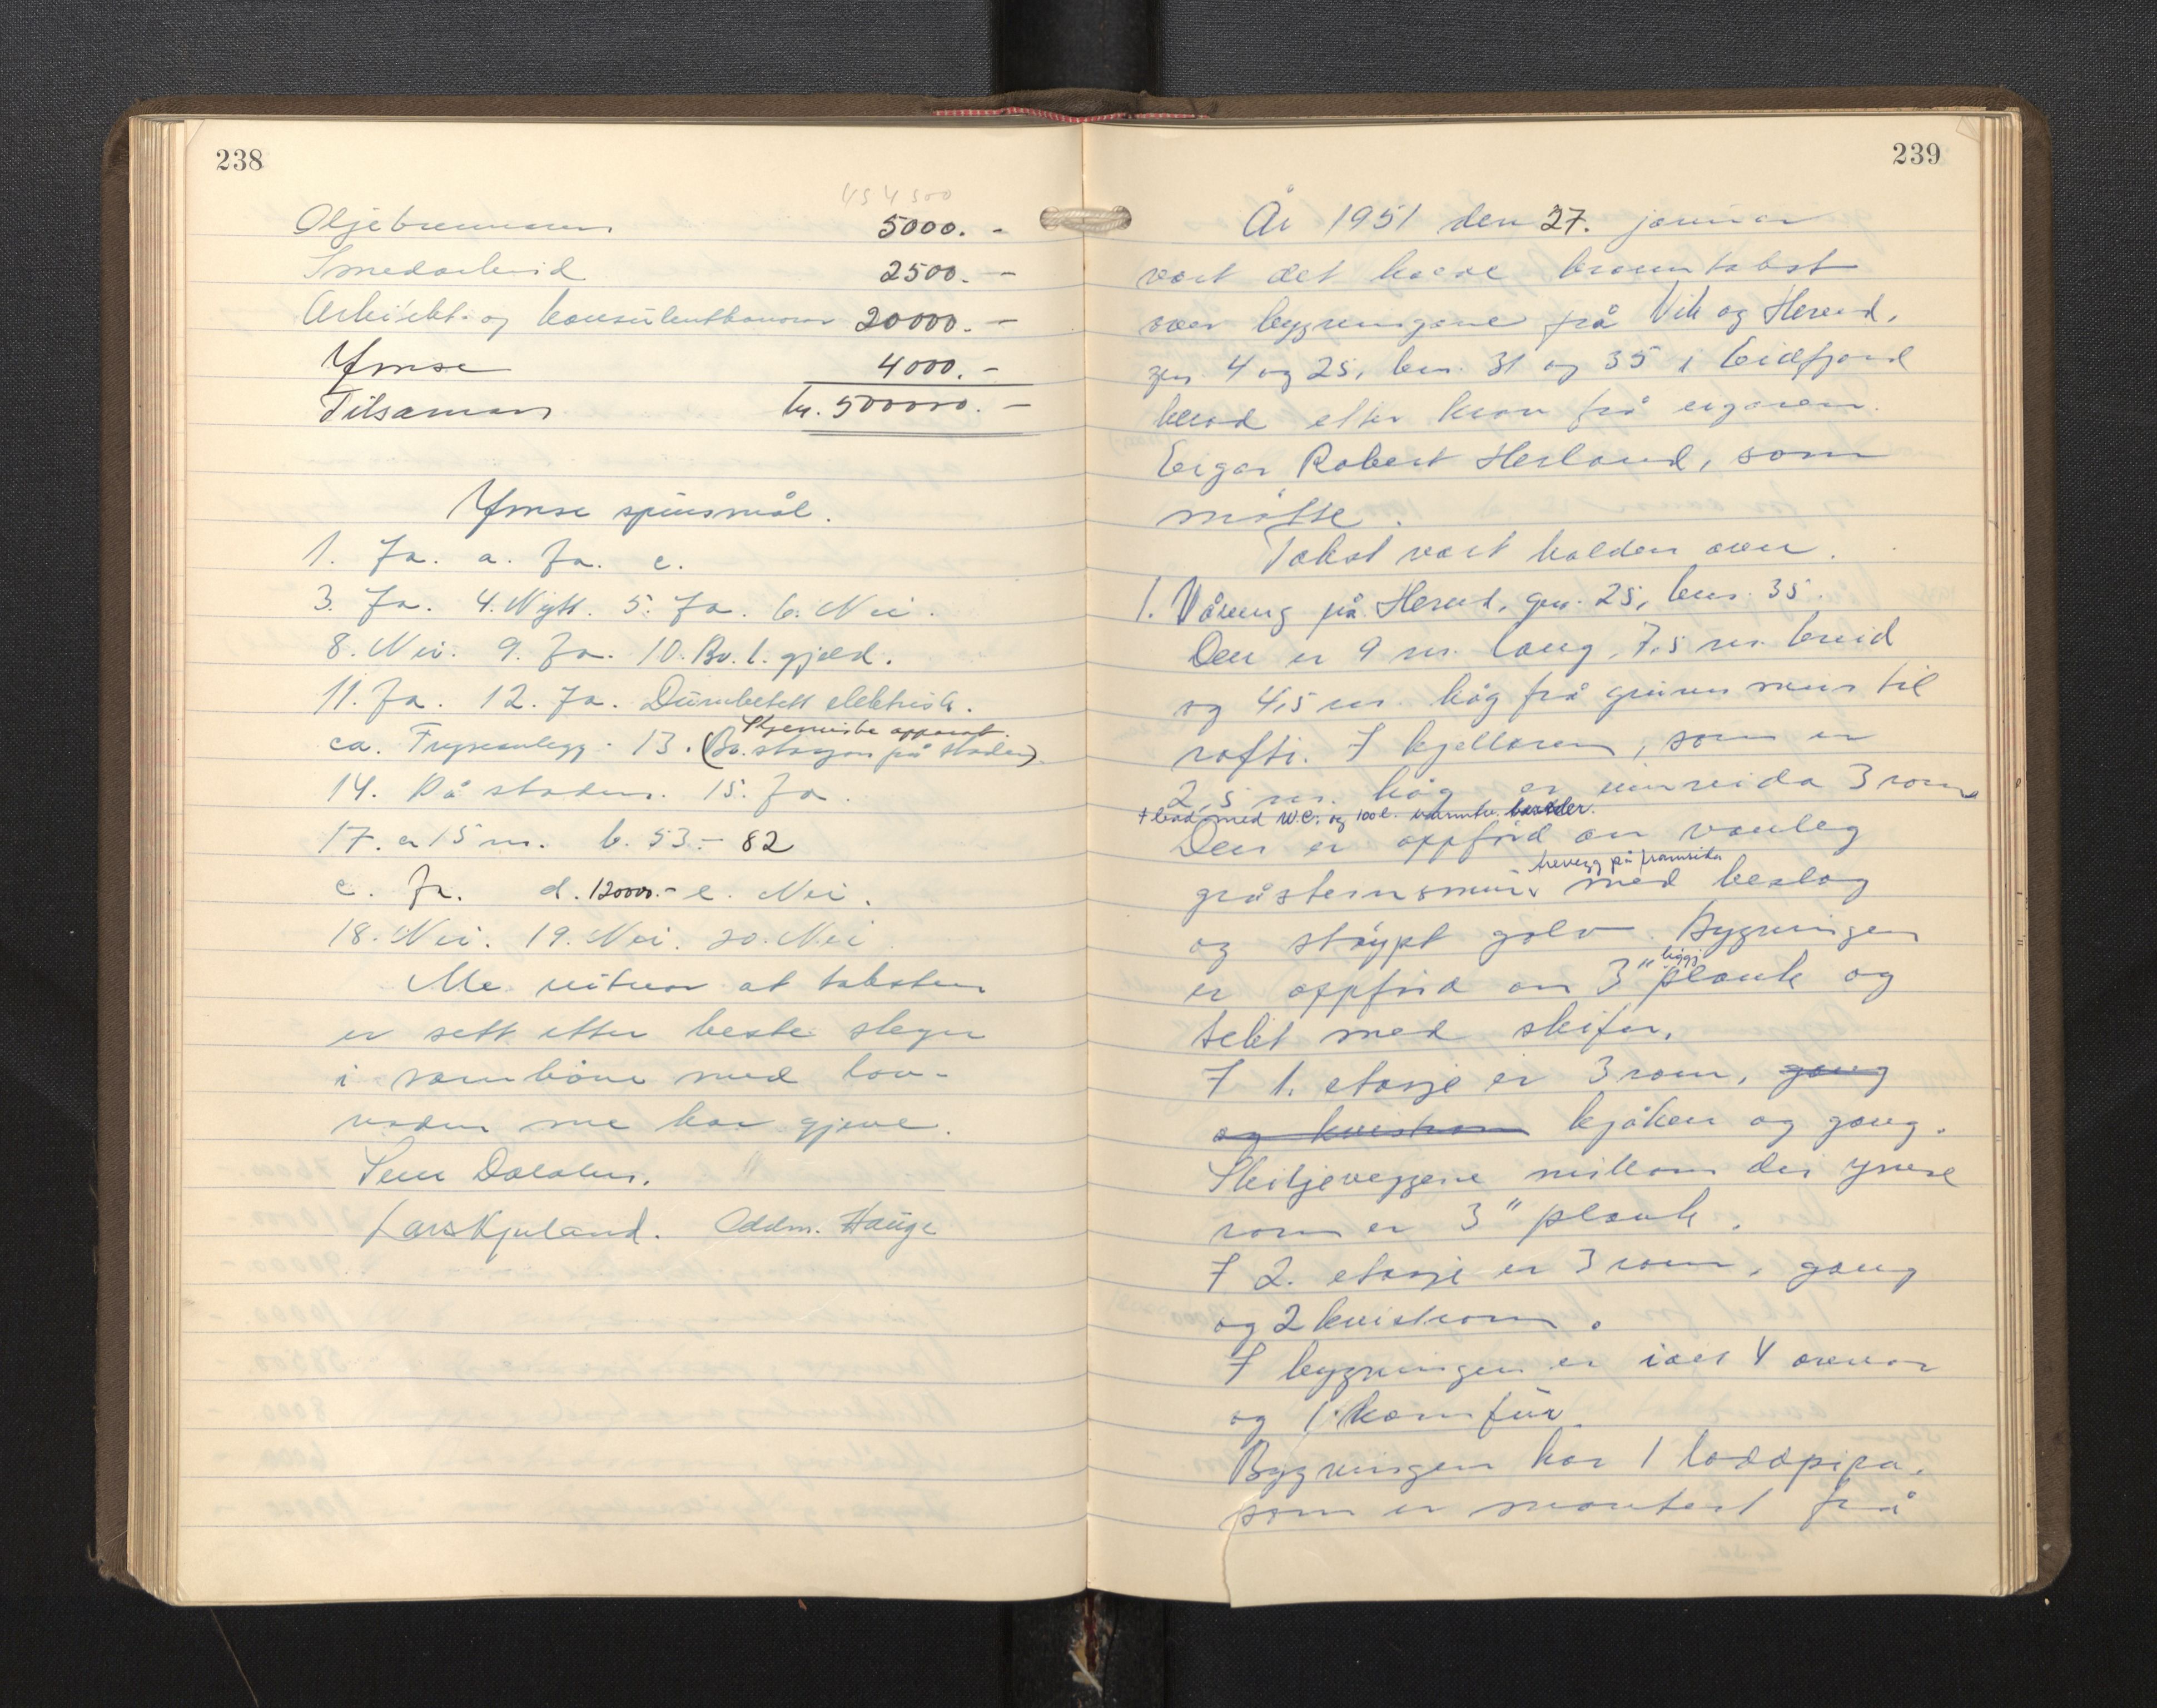 238
454500
Oljebrennaren 5000.-
Smedarbeid 2500.-
Arkitekt- og konsulenthonorar 20000.-
Ymse 4000.-
Tilsaman kr. 500000.-
Ymse spursmål.
1. Ja. a. Ja. c.
3. Ja. 4. Nytt. 5. Ja. 6. Nei.
8. Nei. 9. Ja. 10. Br. l. gjeld.
11. Ja. 12. Ja. Durabelett elektrisk.
Skjemiske apparat.
ca. Fryseanlegg. 13. (Br. stasjon på staden)
14. På staden. 15. Ja.
17. a 15 m. b. 53.- 82
c. Ja. d. 12000.- e. Nei.
18. Nei. 19. Nei. 20. Nei
Me vitnar at taksten
er sett etter beste skjøn
i samhöve med lov-
naden me har gjeve.
Lars Kjeland. Oddm. Hauge
239
År 1951 den 27. januar
vart det halde branntakst
over bygningane frå Vik og Hereid,
gnr. 4 og 25, bnr. 31 og 35 i Eidfjord
herad etter krav frå eigaren.
Eigar Robert Herland, som
møtte.
Takst vart halden over.
1. Våning på Hereid, gnr. 25, bnr. 35.
Den er 9 m. lang, 7,5 m. breid
og 4,5 m. høg frå grunnmur til
rafti. I kjellaren, som er
2,5 m. høg er innreida 3 rom
+ bad med W.C. og 100 l. varmtv. bereder.
Den er oppförd av vanleg
trevegg på framsida
gråsteinsmur, med beslag
og støypt golv. Bygningen
liggj.
er oppförd av 3" plank og
tekt med skifer.
I 1. etasje er 3 rom, gang
og kvistrom kjøken og gang.
Skiljeveggene millom dei ymse
rom er 3" plank.
I 2. etasje er 3 rom, gang
og 2 kvistrom.
I bygningen er i alt 4 omnar
og 1 komfur.
Bygningen har 1 loddpipa,
som er montert frå